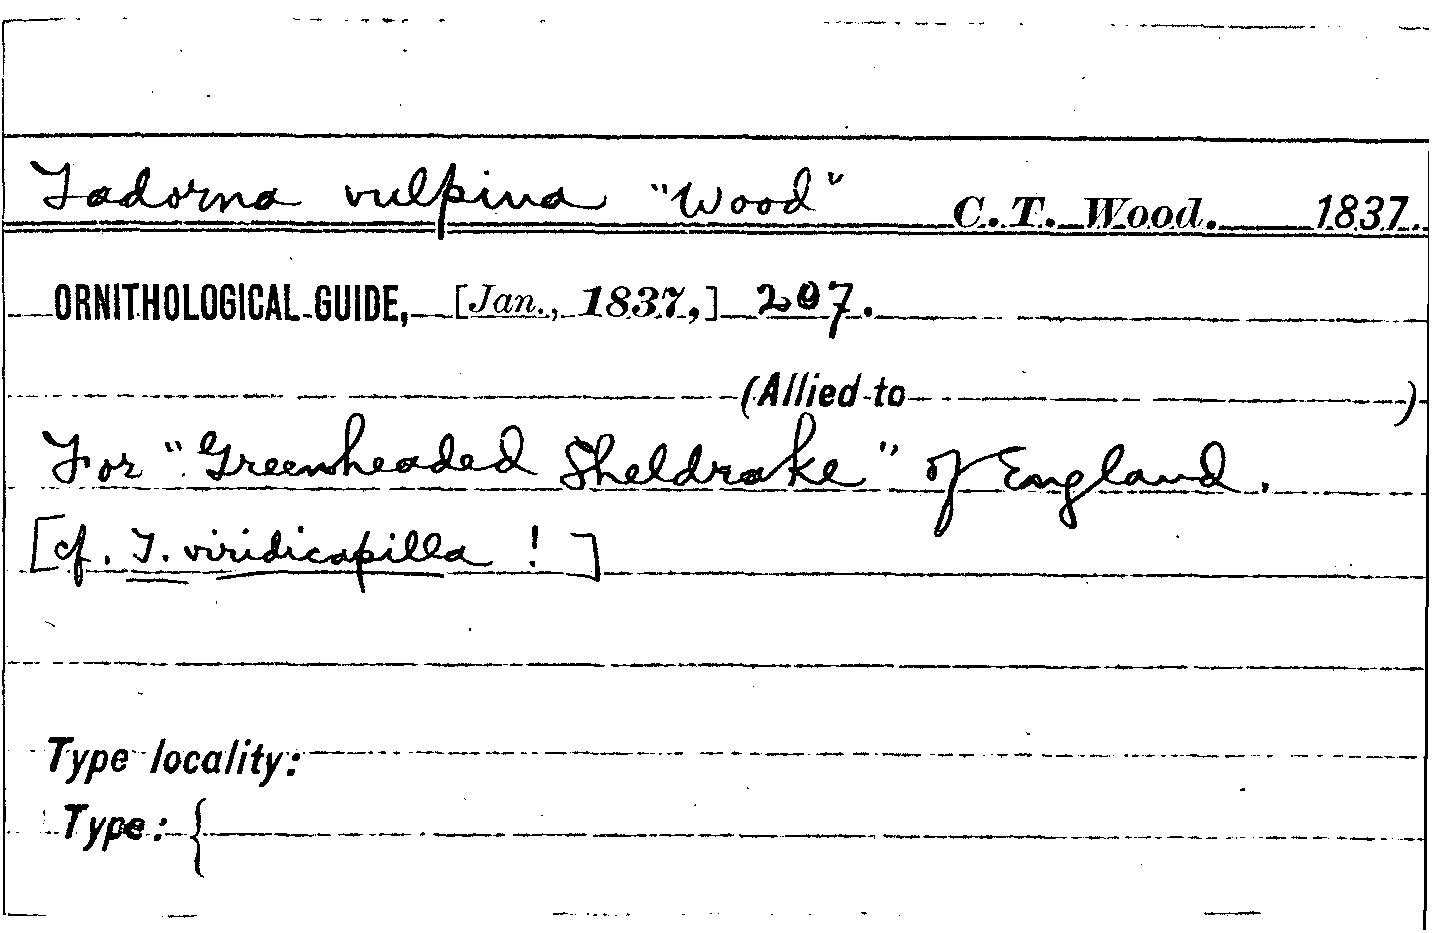 Tadorna vulpina "Wood" C. T. Wood. 1837.
ORNITHOLOGICAL GUIDE, [Jan., 1837,] 207.
(Allied to )
For "Greenheaded Sheldrake" of England.
[cf. T. viridicapilla ! ]
Type locality:
Type: {